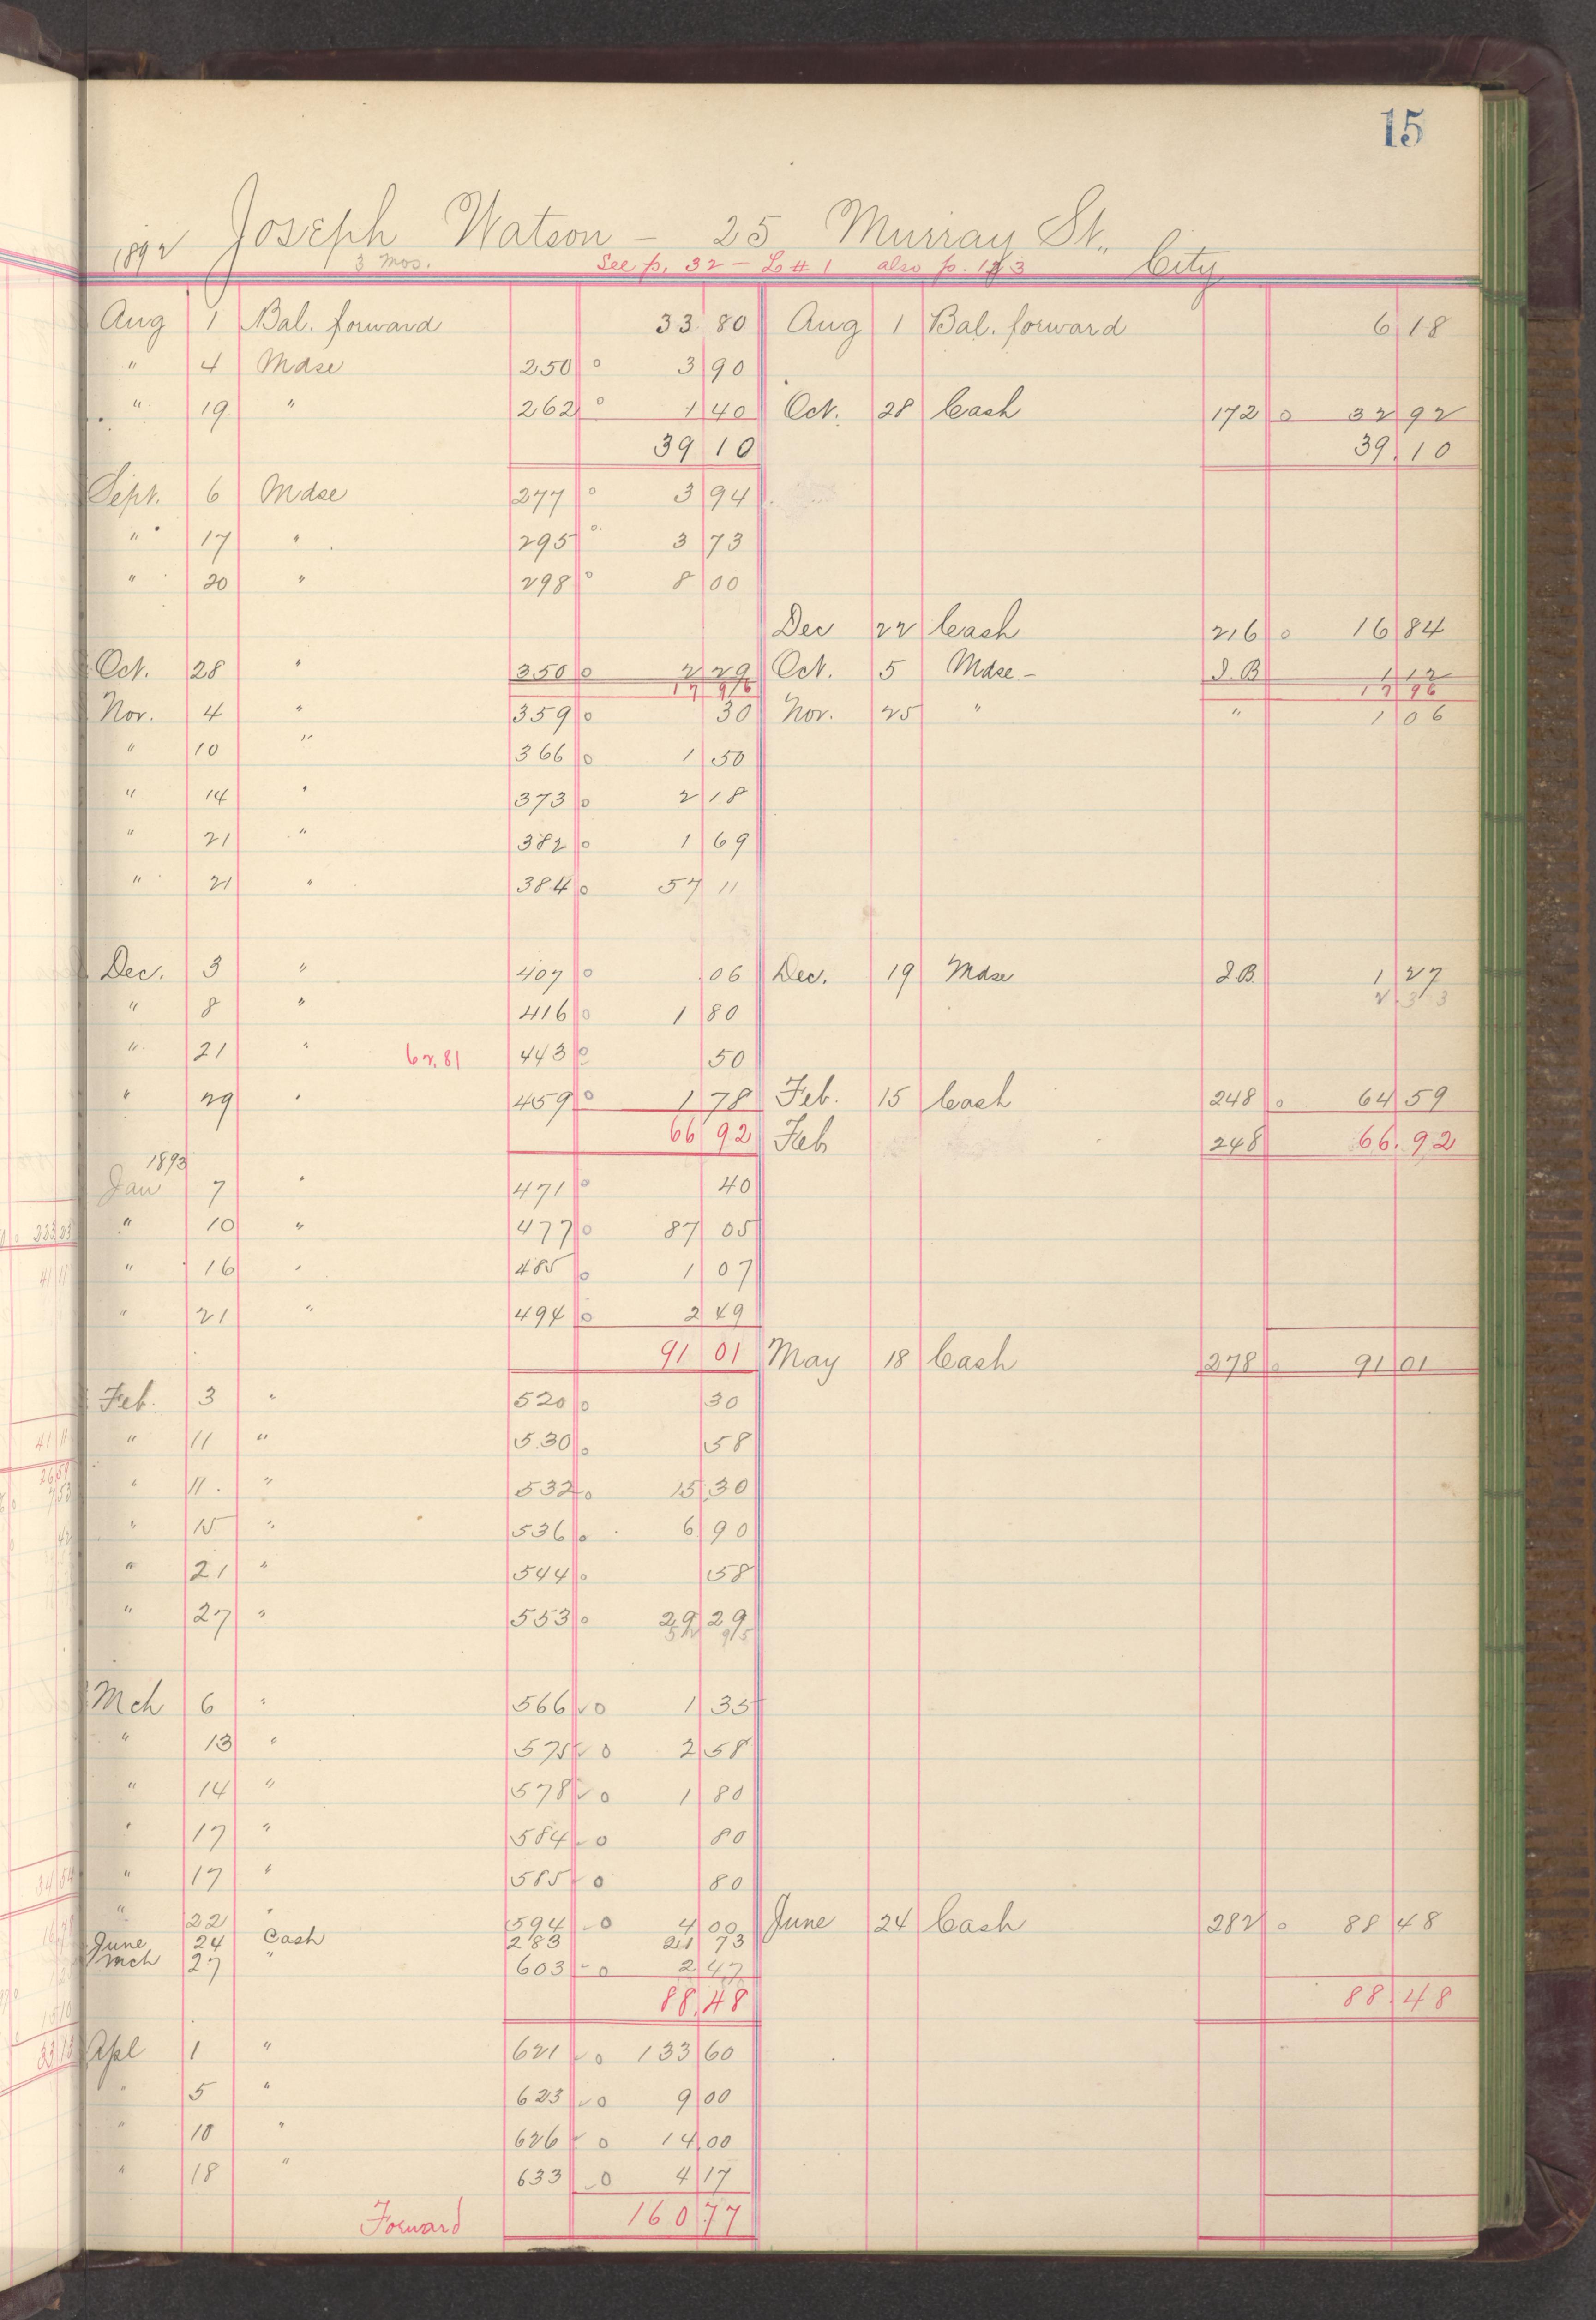 15
Joseph Watson - 25 Murray St.,
1892 3 mos. See p. 32 - L# 1 also p. 123 City
Aug 1 Bal. forward 33 80 Aug 1 Bal. forward 6 18
" 4 Mdse 250 o 3 90
" 19 " 262 o 1 40 Oct. 28 Cash 172 o 32 92
39 10 39.10
Sept. 6 Mdse 277 o 3 94
" 17 " 295 o 3 73
" 20 " 298 o 8 00
Dec 22 Cash 216 o 16 84
Oct. 28 " 350 o 2 29 Oct. 5 Mdse - I.B 1 12
17 96 17 96
Nov. 4 " 359 o 30 Nov. 25 " " 1 06
" 10 " 366 o 1 50
" 14 " 373 o 2 18
" 21 " 382 o 1 69
" 21 " 384 o 57 11
Dec. 3 " 407 o 06 Dec. 19 Mdse I.B. 1 27
2.33
" 8 " 416 o 1 80
" 21 " 62.81 443 o 50
" 29 " 459 o 1 78 Feb. 15 Cash 248 o 64 59
66 92 Feb 248 66.92
1893
Jan 7 " 471 o 40
" 10 " 477 o 87 05
" 16 " 485 o 1 07
" 21 " 494 o 2 49
91 01 May 18 Cash 278 o 91 01
Feb. 3 " 520 o 30
" 11 " 530 o 58
" 11. " 532 o 15 30
" 15 " 536 o 6 90
" 21 " 544 o 58
" 27 " 553 o 29 29
52 95
Mch 6 " 566 o 1 35
" 13 " 575 o 2 58
" 14 " 578 o 1 80
" 17 " 584 o 80
" 17 " 585 o 80
" 22 " 594 o 4 00 June 24 Cash 282 o 88 48
June 24 Cash 283 21 73
Mch 27 " 603 o 2 47
88.48 88.48
Apl 1 " 621 o 133 60
" 5 " 623 o 9 00
" 10 " 626 o 14 00
" 18 " 633 o 4 17
Forward 160 77